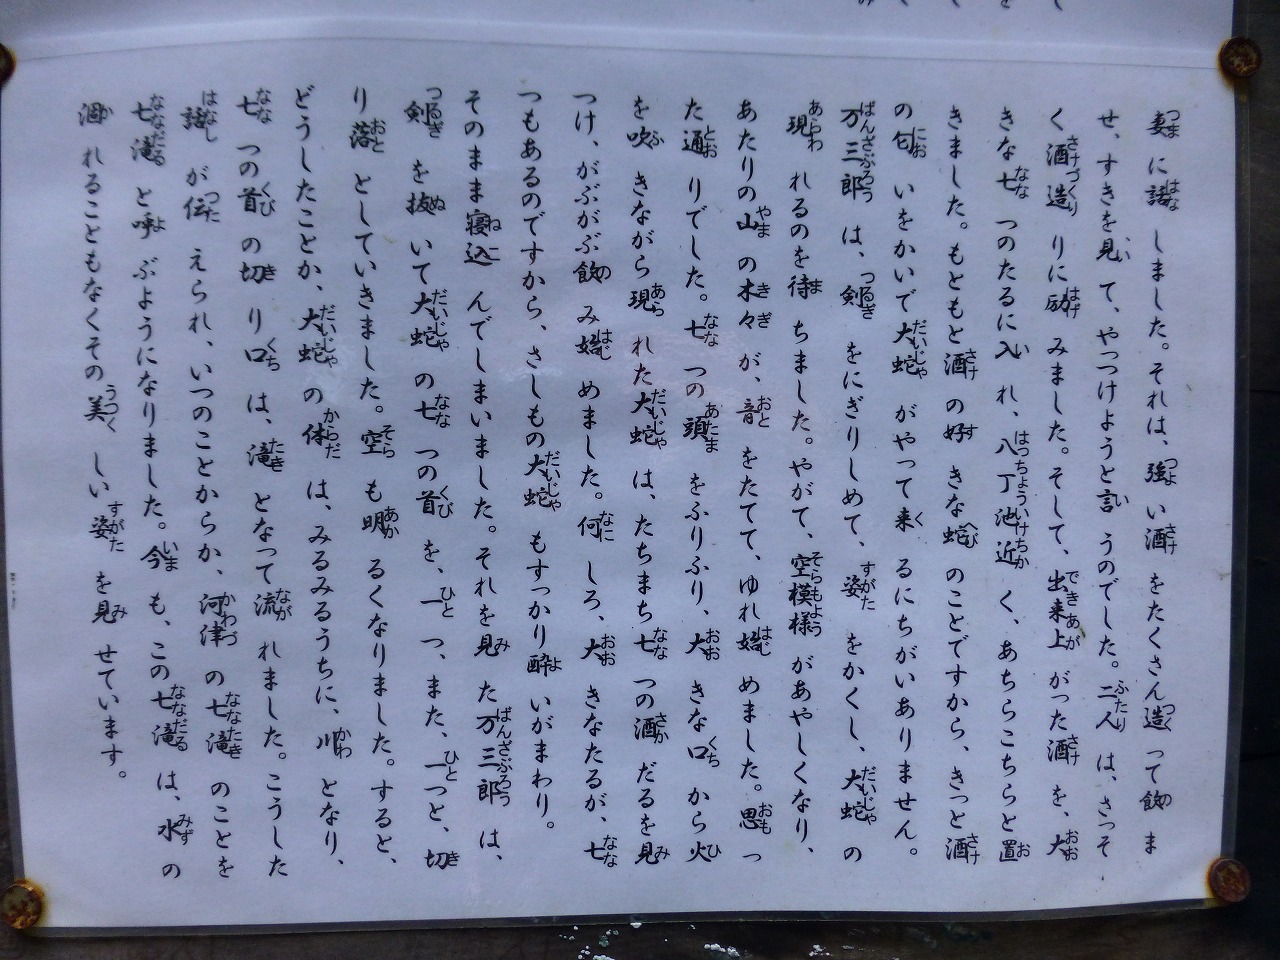 妻に話しました。それは、強い酒をたくさん造って飲ま
せ、すきを見て、やつつけようと言うのでした。二人は、さっそ
く酒造りに励みました。そして、出来上がった酒を、大
きな七つのたるに入れ、八丁池近く、あちらこちらと置
きました。もともと酒の好きな蛇のことですから、きっと酒
の匂いをかいで大蛇がやって来るにちがいありません。
万三郎は、剣をにぎりしめて、姿をかくし、大蛇の
現れるのを待ちました。やがて、空模様があやしくなり、
あたりの山の木々が、音をたてて、ゆれ始めました。思っ
た通りでした。七つの頭をふりふり、大きな口から火
を吹きながら現れた大蛇は、たちまち七つの酒だるを見
つけ、がぶがぶ飲み始めました。何しろ、大きなたるが、七
つもあるのですから、さしもの大蛇もすっかり酔いがまわり。
そのまま寝込んでしまいました。それを見た万三郎は、
剣を抜いて大蛇の七つの首を、一つ、また、一つと、切
り落としていきました。空も明るくなりました。すると、
どうしたことか、大蛇の体は、みるみるうちに、川となり、
七つの首の切り口は、滝となって流れました。こうした
話が伝えられ、いつのことからか、河津の七滝のことを
七滝と呼ぶようになりました。今も、この七滝は、水の
涸れることもなくその美しい姿を見せています。